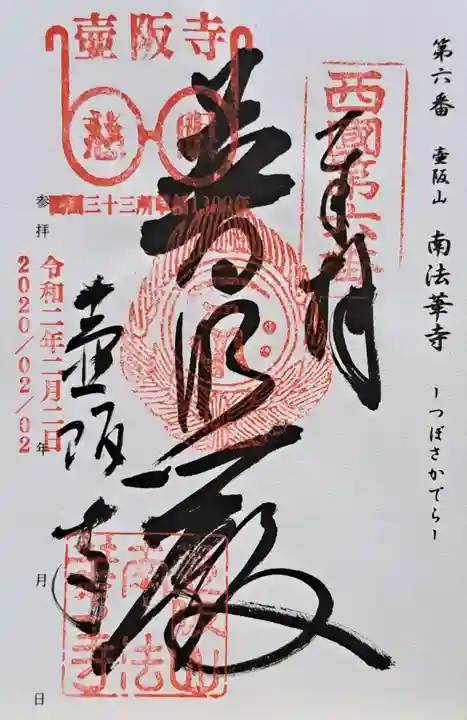 第六番 壺阪山 南法華寺 ーつぼさかでらー
西國第六番
奉拝
普照殿
壺阪寺
壺阪寺
慈眼
西国三十三所草創1300年
参拝 年 月 日
令和二年二月二日
2020/02/02
壺阪山南法華寺